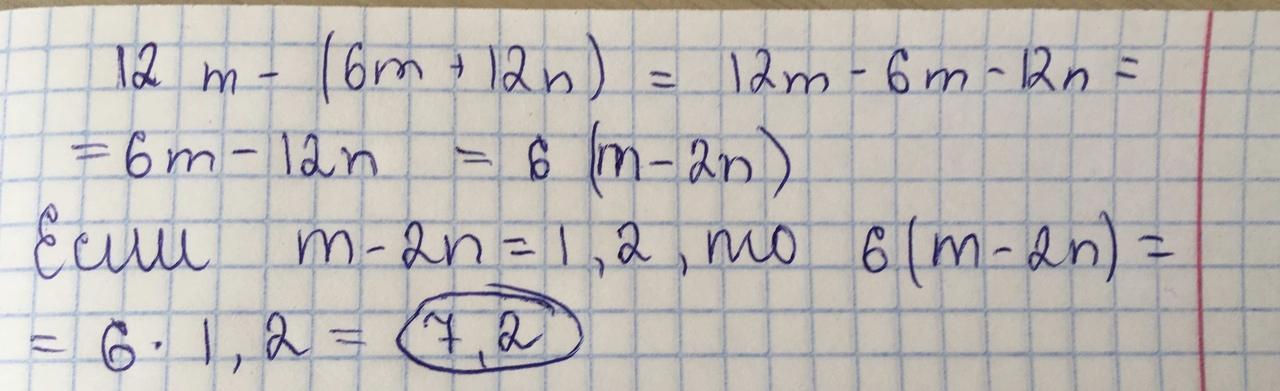 12 m - (6m + 12n) = 12m - 6m - 12n =
= 6m - 12n = 6 (m - 2n)
Если m - 2n = 1,2, то 6(m - 2n) =
= 6 · 1,2 = 7,2